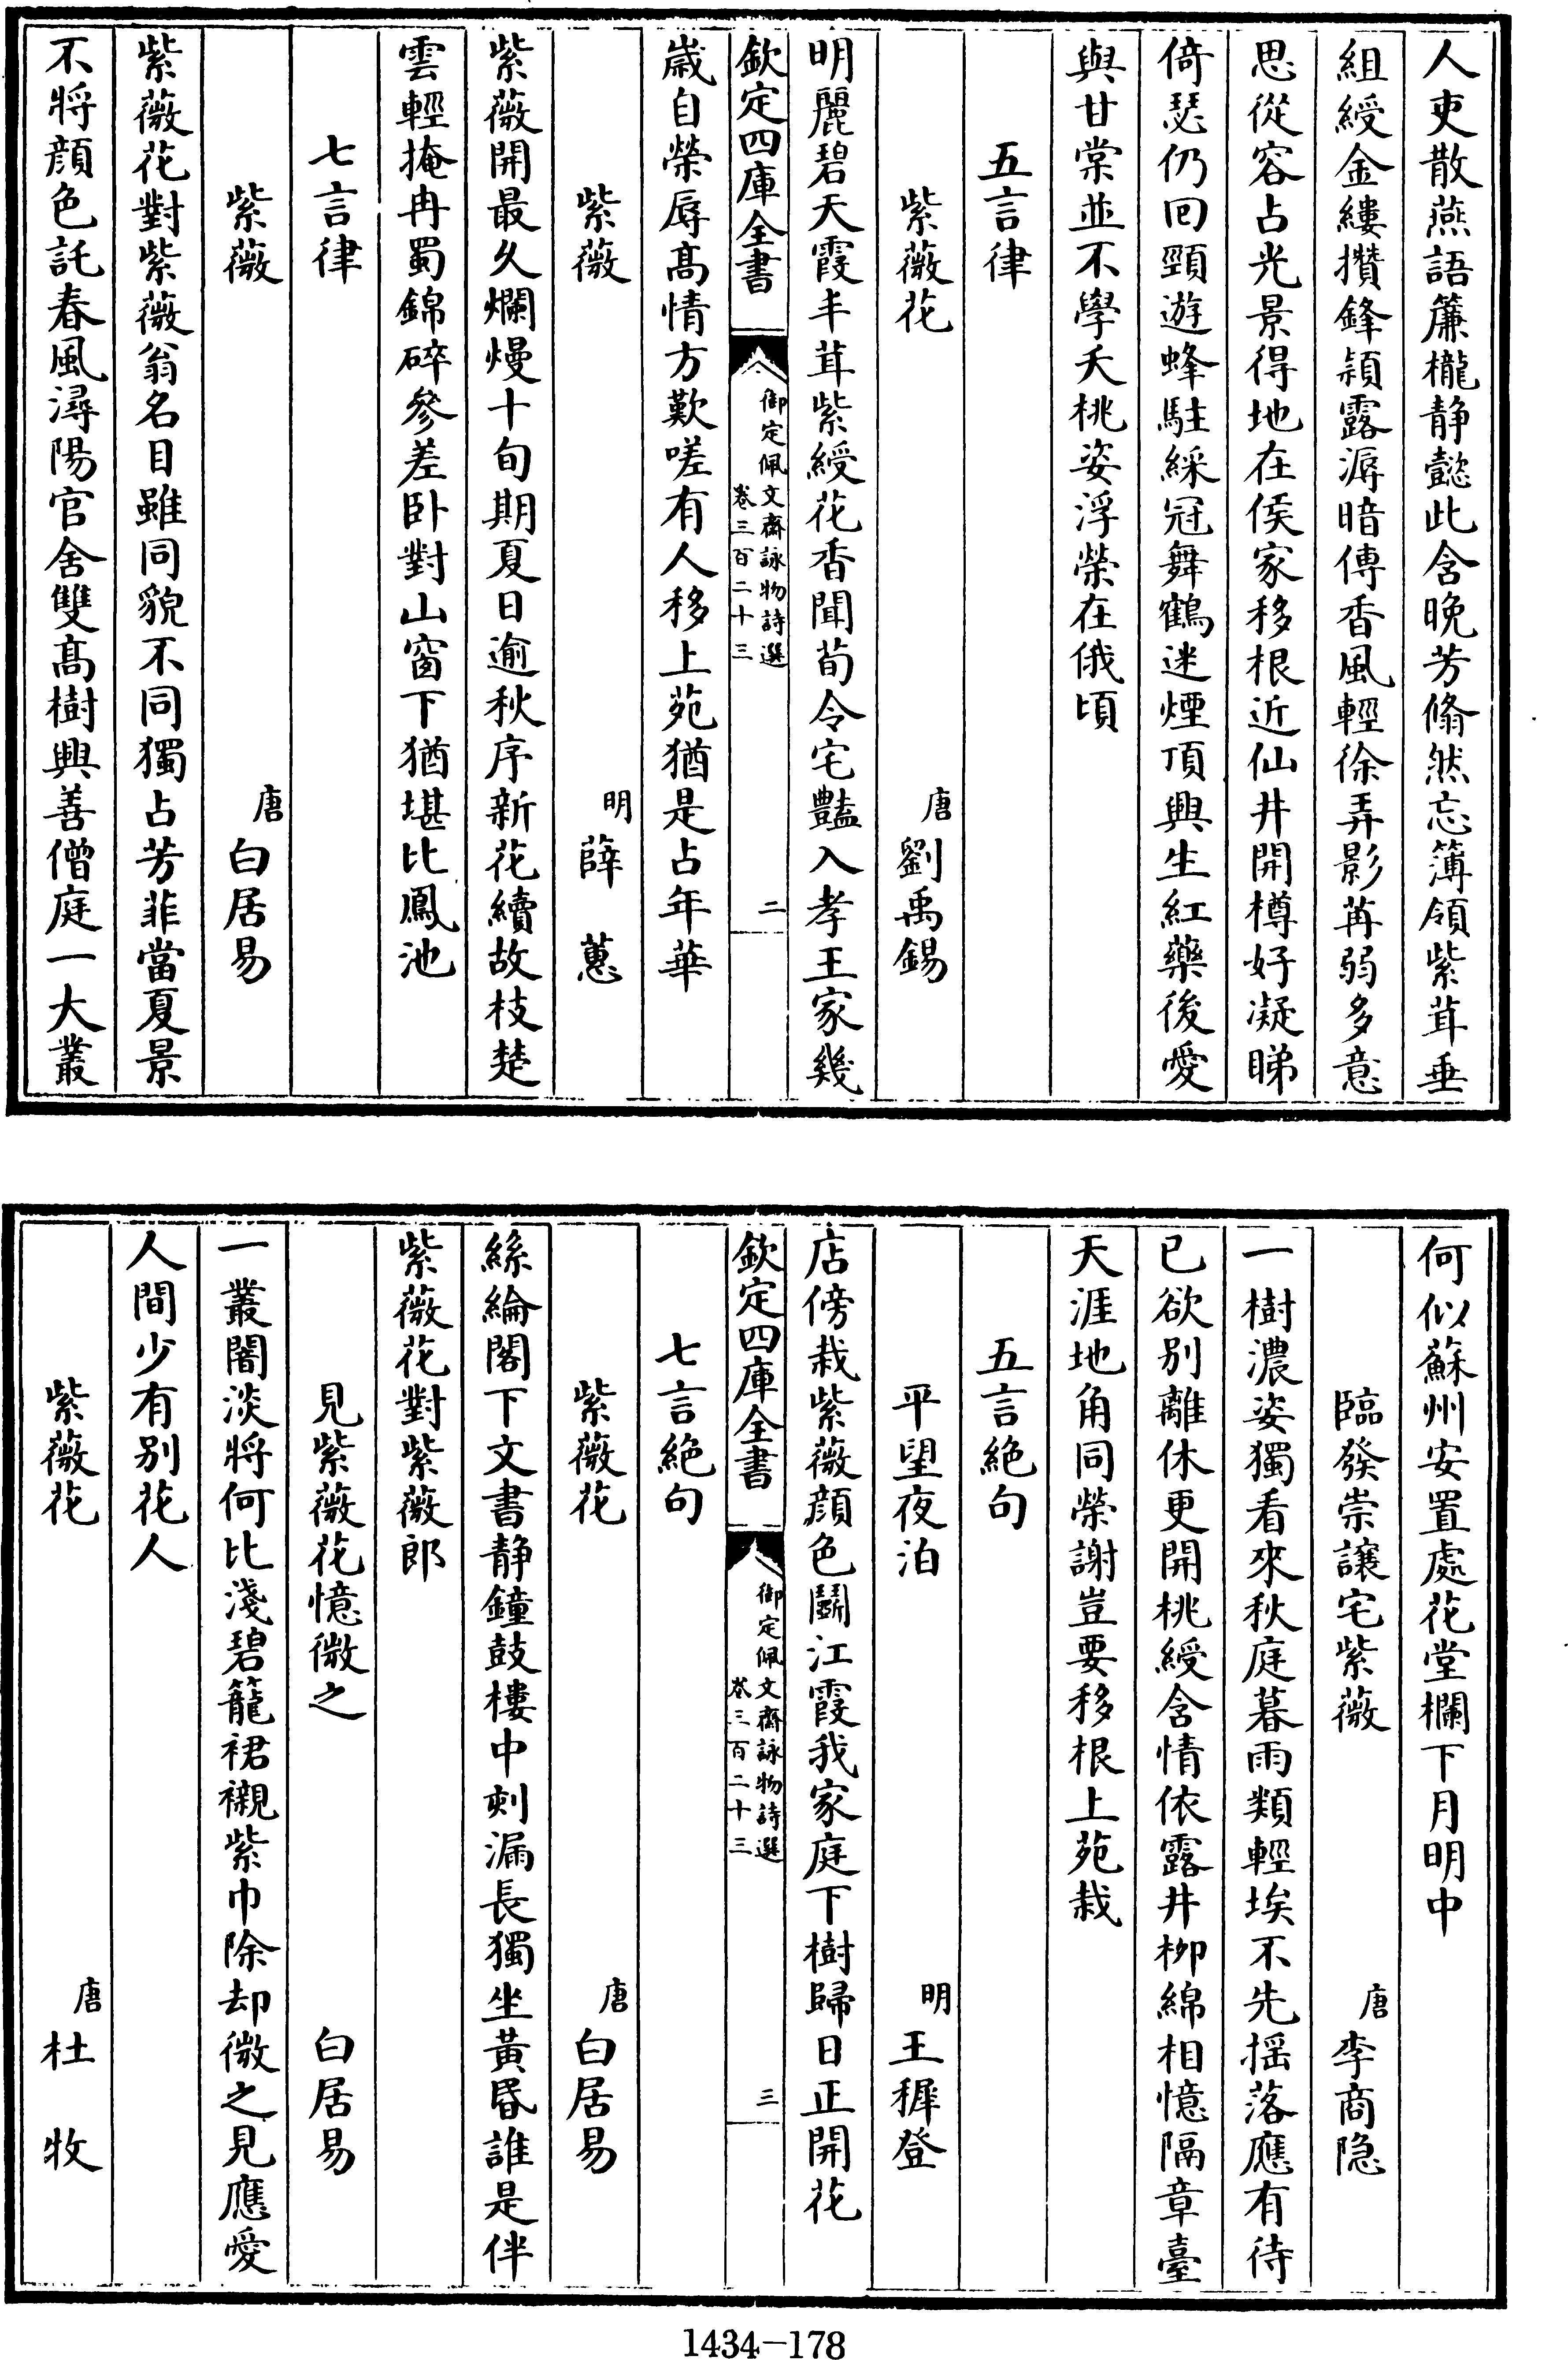 人吏散燕語簾櫳静懿此含晚芳翛然忘簿領紫茸垂
組綬金縷攢鋒穎露溽暗傳香風輕徐弄影苒弱多意
思從容占光景得地在侯家移根近仙井開樽好凝睇
倚瑟仍回頸遊蜂駐綵冠舞鶴迷煙頂興生紅藥後愛
與甘棠並不學夭桃姿浮榮在俄頃
五言律
紫薇花 唐 劉禹錫
明麗碧天霞丰茸紫綬花香聞荀令宅豔入孝王家幾
欽定四庫全書 御定佩文齋詠物詩選 卷三百二十三 二
歳自榮辱髙情方歎嗟有人移上苑猶是占年華
紫薇 明 薛蕙
紫薇開最久爛熳十旬期夏日逾秋序新花續故枝楚
雲輕掩冉蜀錦碎參差卧對山窗下猶堪比鳳池
七言律
紫薇 唐 白居易
紫薇花對紫薇翁名目雖同貌不同獨占芳菲當夏景
不將顔色託春風潯陽官舍雙髙樹興善僧庭一大叢
何似蘇州安置處花堂欄下月明中
臨發崇讓宅紫薇 唐 李商隐
一樹濃姿獨看來秋庭暮雨類輕埃不先揺落應有待
已欲别離休更開桃綬含情依露井柳綿相憶隔章臺
天涯地角同榮謝豈要移根上苑栽
五言絶句
平望夜泊 明 王穉登
店傍栽紫薇顔色鬬江霞我家庭下樹歸日正開花
欽定四庫全書 御定佩文齋詠物詩選 卷三百二十三 三
七言絶句
紫薇花 唐 白居易
絲綸閣下文書静鐘鼓樓中刻漏長獨坐黃昏誰是伴
紫薇花對紫薇郎
見紫薇花憶微之 白居易
一叢闇淡將何比淺碧籠裙襯紫巾除却微之見應愛
人間少有别花人
紫薇花 唐 杜牧
1434-178